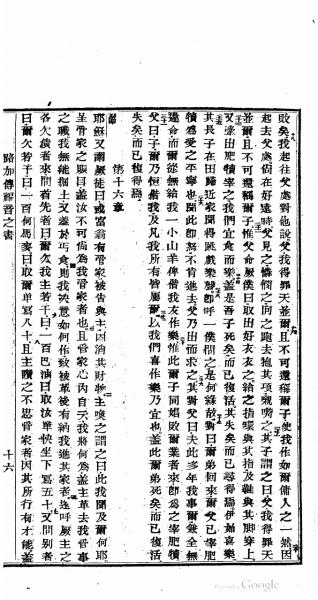 敗矣我起往父處對他說父我得罪天並爾且不可還稱爾子使我作如爾傭人之一然因
起去父處倘在好遠時父見之憐憫之向之跑去抱其項親嘴之其子謂之曰父我得罪天
並爾且不可還稱爾子惟父命厥僕曰取出好衣衣之給之指環與其指及鞋與其脚穿上
又牽出肥犢宰之我們宜食而樂蓋是吾子死矣而已復活其失矣而已尋得焉伊始喜樂
其長子在田歸近家聞得跳戲樂聲即呼一僕問之是何緣故對曰爾弟回來爾父已宰肥
犢為愛之平寧也聞此即怒不肯進去父乃出而求之其對父曰夫此多年我事爾從全無
違命而爾從無給我一小山羊俾借我友作樂惟此爾子同娼敗爾業者來即為之宰肥犢
父曰子爾乃恒偕我及凡我所有皆屬爾以我們喜作樂乃宜也蓋此爾弟死矣而已復活
失矣而已得焉
第十六章
耶穌又謂厥徒曰或富翁有管家被告與主因消其財物主喚之謂之曰此我聞及爾何耶
呈管家之賬目蓋汝不可尚為我管家者也且管家心內自天我將何為蓋主革去我管事
之職我無能掘土又羞於丐食則我決意如何作致被革後有納我進其家者遂呼厥主之
各欠債者來問首先者曰爾欠我主若干曰一百巴一油曰取汝單快坐下寫五十又問別者
曰爾欠若干曰一百可馬麥曰取爾單寫八十且主讚之不忠管家者因其所行有才能蓋
路加傳福音之書
十六
Digitized by Google